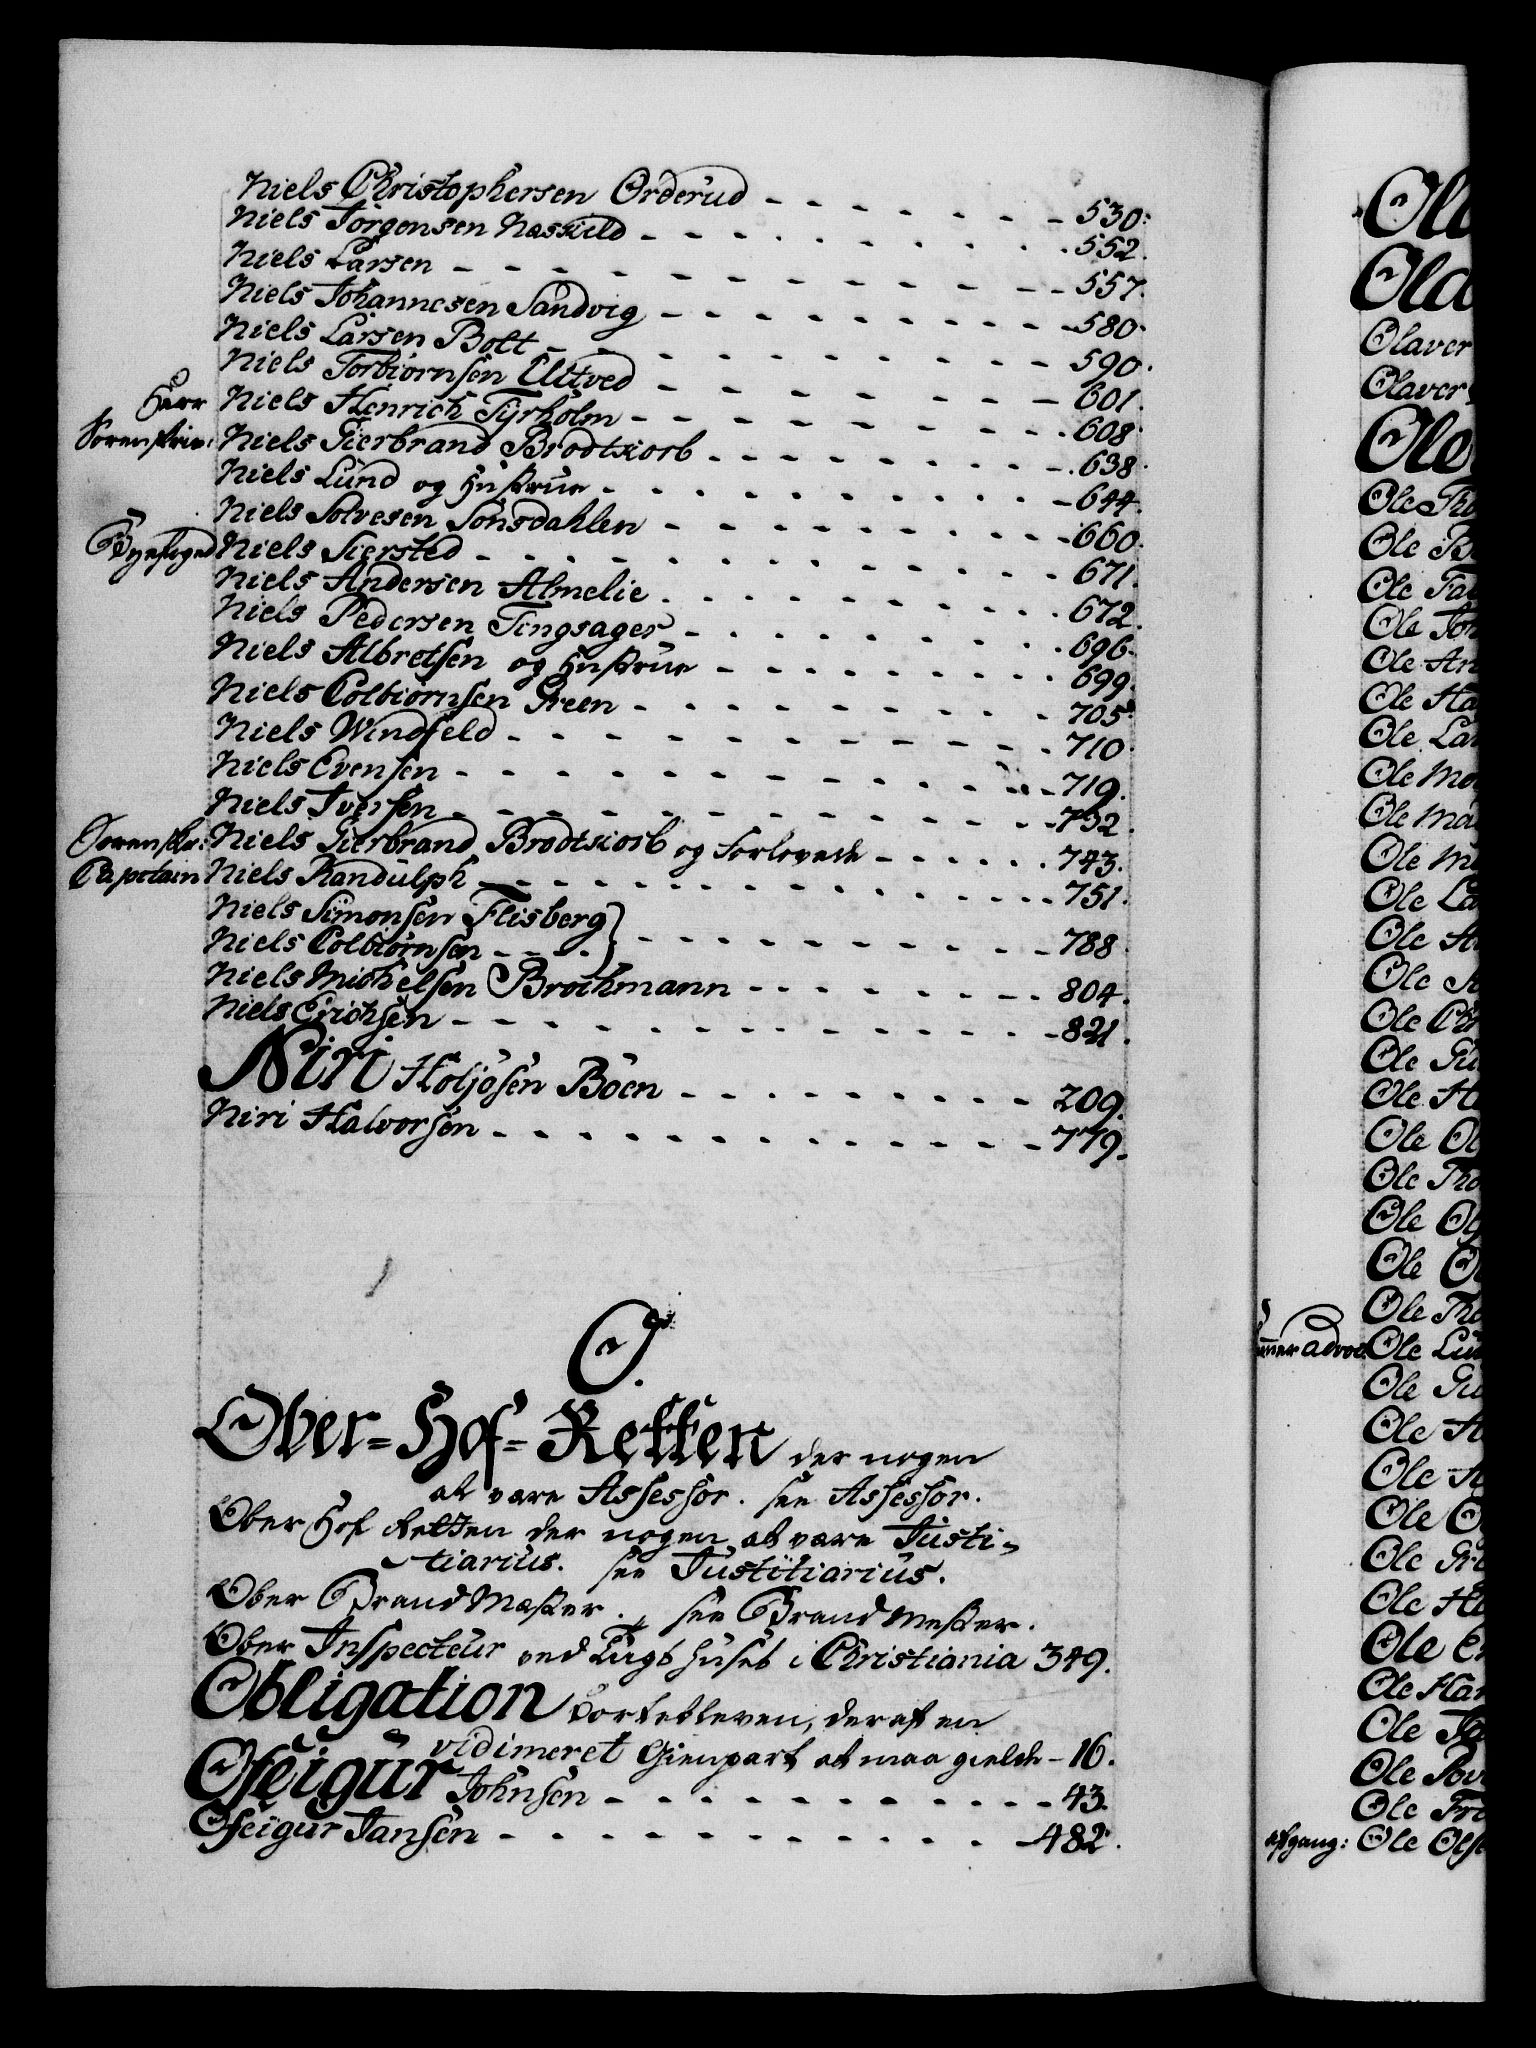 Niels Christophersen Orderud - - - - - - - 530:
Niels Jörgensen Næskild - - - - - - - - - 552.
Niels Larsen - - - - - - - - - - - - 557.
Niels Johannesen Sandvig - - - - - - - - - 580.
Niels Larsen Bott - - - - - - - - - - - 590.
Niels Torbiörnsen Ultved - - - - - - - - 601.
Herr Niels Henrich Tyrholm - - - - - - - - - 608.
Sorenskriv: Niels Gierbrand Brodtkorb - - - - - - - 638.
Niels Lund og Hustrue - - - - - - - - - 644.
Niels Solvesen Sonsdahlen - - - - - - - - 660.
Byefoged Niels Siersted - - - - - - - - - - - 671.
Niels Andersen Almelie - - - - - - - - - 672.
Niels Pedersen Tingsager - - - - - - - - 696.
Niels Albretsen og Hustrue - - - - - - - 699.
Niels Colbiörnsen Green - - - - - - - - - 705.
Niels Windfeld - - - - - - - - - - - 710.
Niels Evensen - - - - - - - - - - - - 719.
Niels Iversen - - - - - - - - - - - - 732.
Sorenskr: Niels Gierbrand Brodtkorb og Forlovede - - - - - 743.
Capitain Niels Randulph - - - - - - - - - - - 751.
Niels Simonsen Flisberg
Niels Colbiörnsen - - - } - - - - - - - - 788.
Niels Michelsen Brochmann - - - - - - - 804.
Niels Erichsen - - - - - - - - - - - 821.
Niri Holjösen Böen - - - - - - - - 209.
Niri Halvorsen - - - - - - - - - - - 779.
O.
Ober-Hof-Retten der nogen
at være Assessor. see Assessor.
Ober Hof Retten der nogen at være Justi-
tiarius. see Justitiarius.
Ober Brand Mæster. see Brand Mester.
Ober Inspecteur ved Tugthuset i Christiania 349.
Obligation bortebleven, deraf en
vidimeret Gienpart at maa gielde - 16.
Ofeigur Johnsen - - - - - - - - - - 43.
Ofeigur Jansen - - - - - - - - - - 482.
Olaver
Olaver
Ole
Ole
Ole
Ole
Ole
Ole
Ole
Ole
Ole
Ole
Ole
Ole
Ole
Ole
Ole
Ole
Ole
Ole
Ole
Ole
Ole
Ole
Ole
Ole
Ole
Ole
Ole
Ole
Ole
Ole
Ole
Ole
Ole
Ole
Ole
afgang: Ole